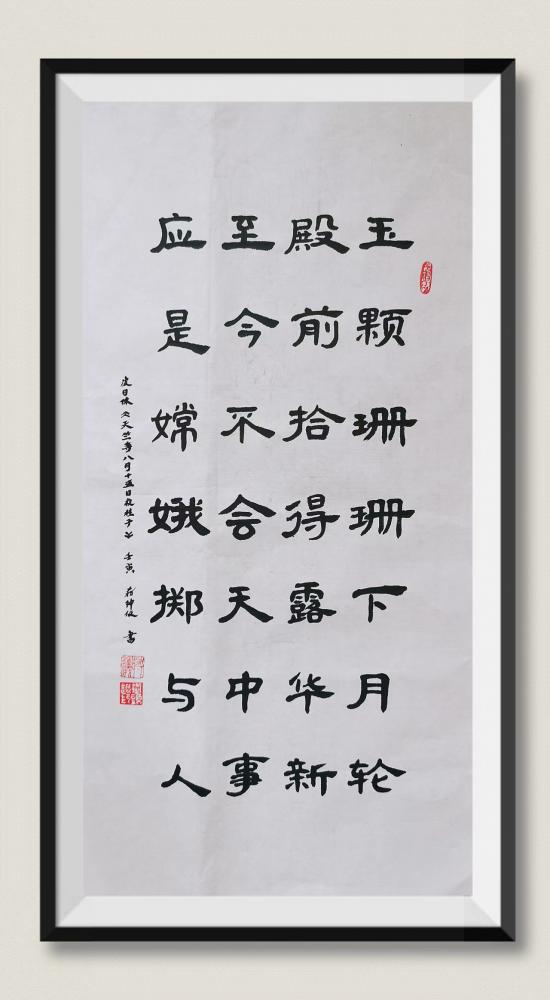 玉颗珊珊下月轮
殿前拾得露华新
至今不会天中事
应是嫦娥掷与人
皮日休《天竺寺八月十五日夜桂子》 壬寅 书